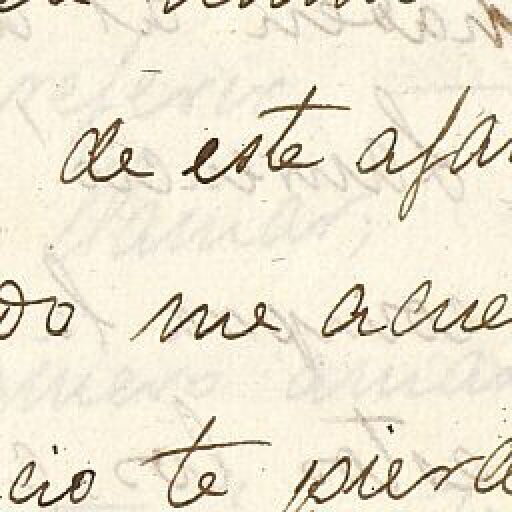 de este afan
do me acue
cio te pierd